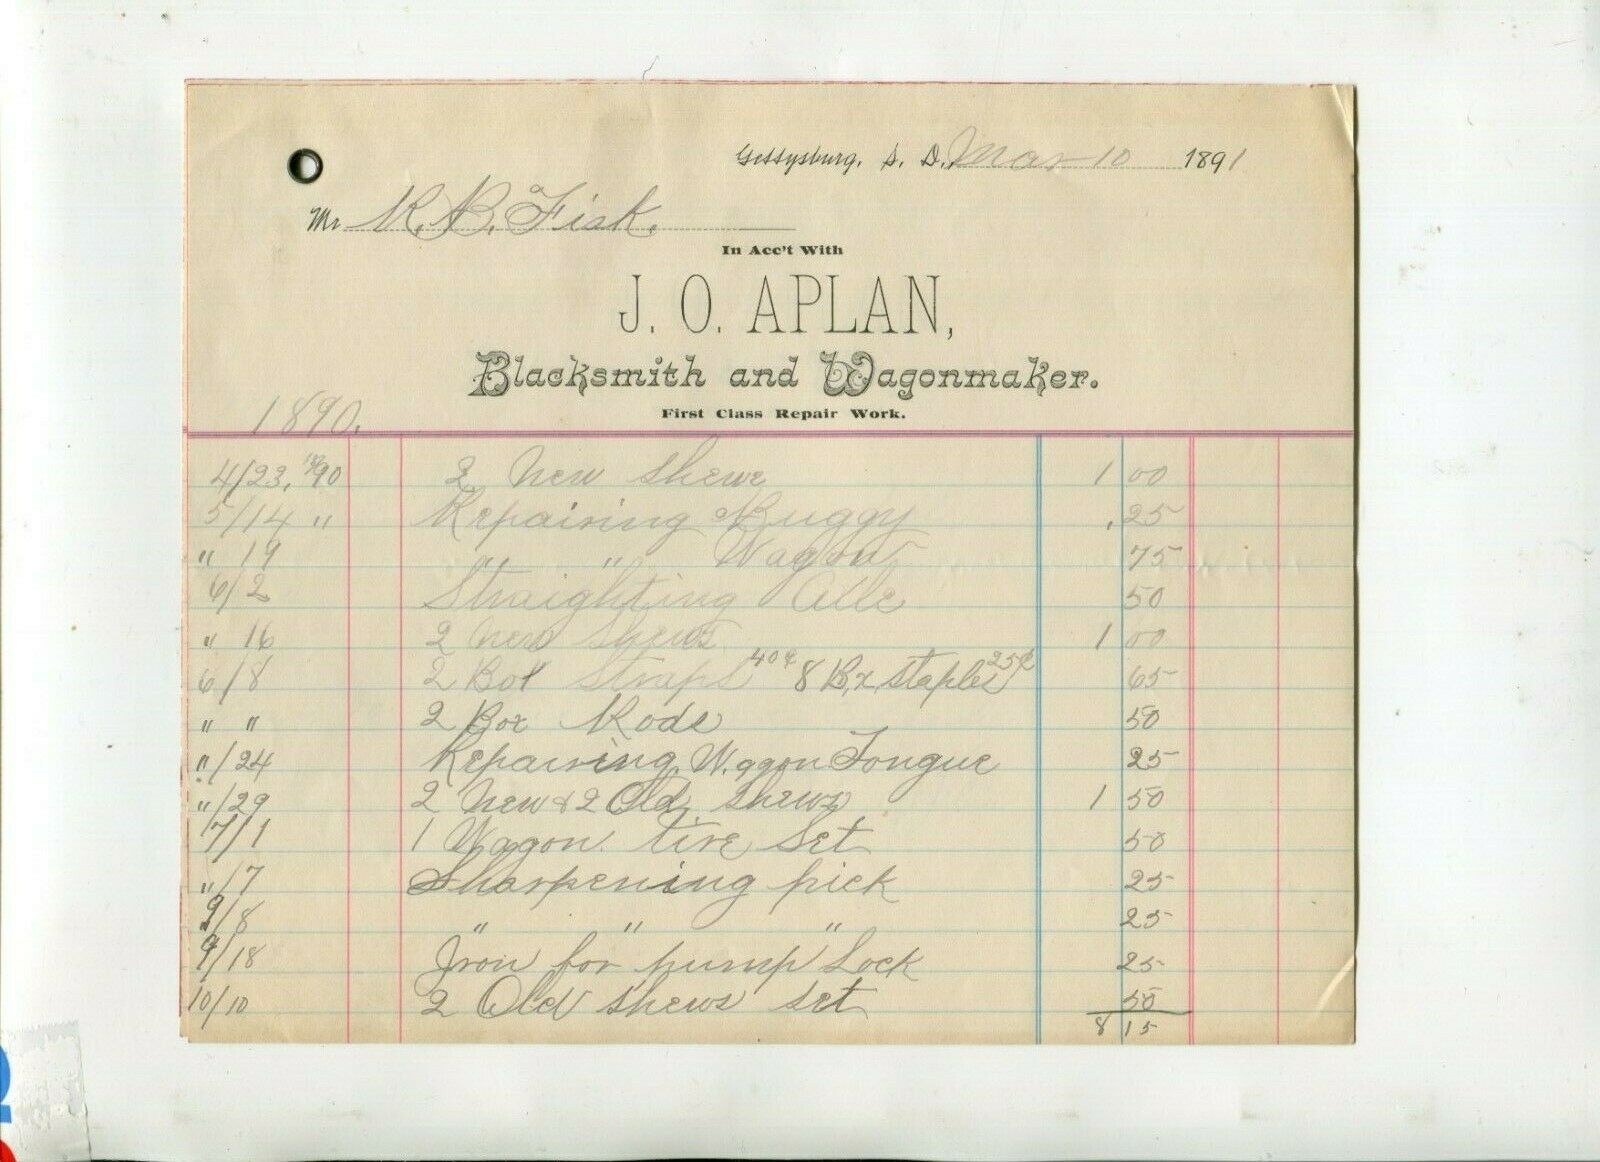 Gettysburg, S. D. Mar 10 1891
Mr R. B. Fisk.
In Acc't With
J. O. APLAN,
Blacksmith and Wagonmaker.
First Class Repair Work.
1890.
4/23, 1890 2 New Shews 1 00
5/14 " Repairing Buggy .25
" 19 " " Wagon 75
6/2 Straighting Alle 50
" 16 2 New Shews 1 00
6/8 2 Box Straps 40¢ 8 Bx Staples 25¢ 65
" " 2 Box Rods 50
"/24 Repairing Waggon Tongue 25
"/29 2 New & 2 Old Shews 1 50
7/1 1 Wagon tire Set 50
"/7 Sharpening pick 25
9/8 " " " 25
9/18 Iron for pump Lock 25
10/10 2 Old Shews Set 50
8 15